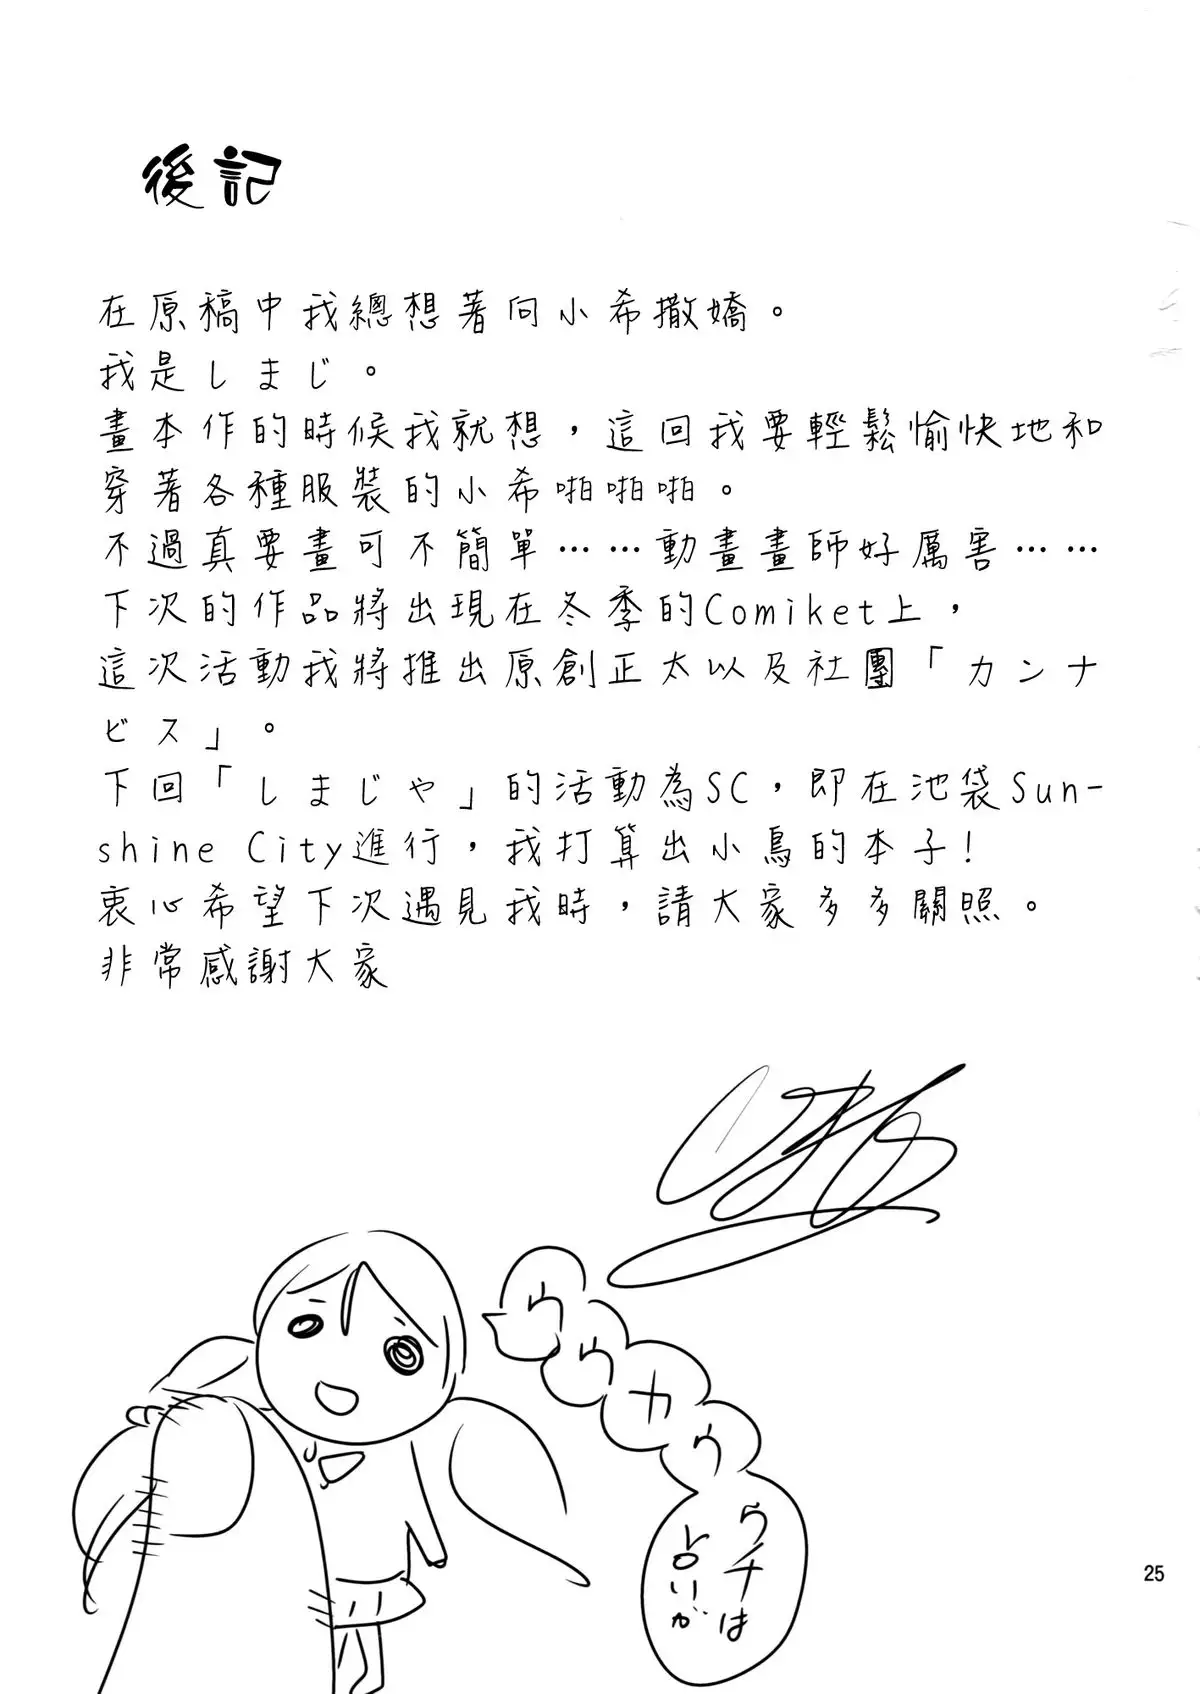 後記
在原稿中我總想著向小希撒嬌。
我是しまじ。
畫本作的時候我就想，這回我要輕鬆愉快地和
穿著各種服裝的小希啪啪啪。
不過真要畫可不簡單……動畫畫師好厲害……
下次的作品將出現在冬季的Comiket上，
這次活動我將推出原創正太以及社團「カンナ
ビス」。
下回「しまじや」的活動為SC，即在池袋Sun-
shine City進行，我打算出小鳥的本子!
衷心希望下次遇見我時，請大家多多關照。
非常感謝大家
25